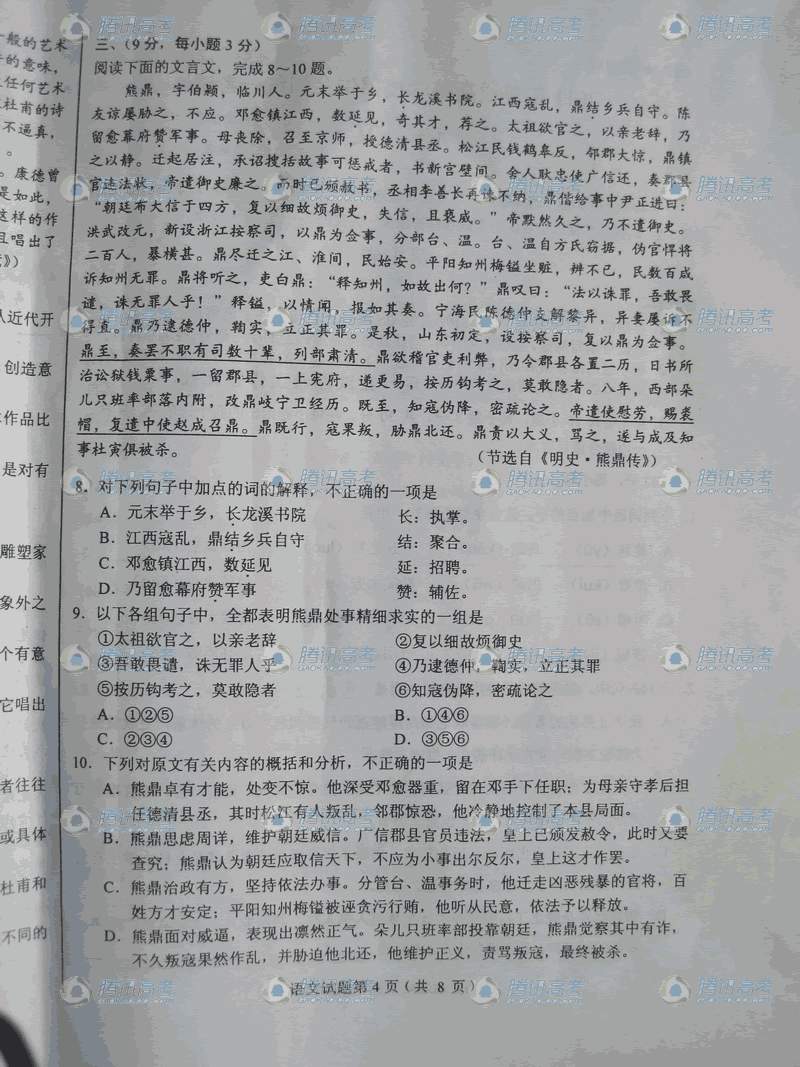 三、（9分，每小题3分）
阅读下面的文言文，完成8～10题。
熊鼎，字伯颖，临川人。元末举于乡，长龙溪书院。江西寇乱，鼎结乡兵自守。陈
友谅屡胁之，不应。邓愈镇江西，数延见，奇其才，荐之。太祖欲官之，以亲老辞，乃
留愈幕府赞军事。母丧除，召至京师，授德清县丞。松江民钱鹤皋反，邻郡大惊，鼎镇
之以静。迁起居注，承诏搜括故事可惩戒者，书新宫壁间。舍人耿忠使广信还，奏郡县
官违法状，帝遣御史廉之。而时已颁赦书，丞相李善长再谏不纳，鼎偕给事中尹正进曰：
“朝廷布大信于四方，复以细故烦御史，失信，且亵威。”帝默然久之，乃不遣御史。
洪武改元，新设浙江按察司，以鼎为佥事，分部台、温。台、温自方氏窃据，伪官悍将
二百人，暴横甚。鼎尽迁之江、淮间，民始安。平阳知州梅镒坐赃，辨不已，民数百咸
诉知州无罪。鼎将听之，吏白鼎：“释知州，如故出何？”鼎叹曰：“法以诛罪，吾敢畏
谴，诛无罪人乎！”释镒，以情闻，报如其奏。宁海民陈德仲支解黎异，异妻屡诉不
得直。鼎乃逮德仲，鞠实，立正其罪。是秋，山东初定，设按察司，复以鼎为佥事。
鼎至，奏罢不职有司数十辈，列部肃清。鼎欲稽官吏利弊，乃令郡县各置二历，日书所
治讼狱钱粟事，一留郡县，一上宪府，递更易，按历钩考之，莫敢隐者。八年，西部朵
儿只班率部落内附，改鼎岐宁卫经历。既至，知寇伪降，密疏论之。帝遣使慰劳，赐裘
帽，复遣中使赵成召鼎。鼎既行，寇果叛，胁鼎北还。鼎责以大义，骂之，遂与成及知
事杜寅俱被杀。
（节选自《明史·熊鼎传》）
8．对下列句子中加点的词的解释，不正确的一项是
A．元末举于乡，长龙溪书院 长：执掌。
B．江西寇乱，鼎结乡兵自守 结：聚合。
C．邓愈镇江西，数延见 延：招聘。
D．乃留愈幕府赞军事 赞：辅佐。
9．以下各组句子中，全都表明熊鼎处事精细求实的一组是
①太祖欲官之，以亲老辞 ②复以细故烦御史
③吾敢畏谴，诛无罪人乎 ④乃逮德仲，鞠实，立正其罪
⑤按历钩考之，莫敢隐者 ⑥知寇伪降，密疏论之
A．①②⑤ B．①④⑥
C．②③④ D．③⑤⑥
10．下列对原文有关内容的概括和分析，不正确的一项是
A．熊鼎卓有才能，处变不惊。他深受邓愈器重，留在邓手下任职；为母亲守孝后担
任德清县丞，其时松江有人叛乱，邻郡惊恐，他冷静地控制了本县局面。
B．熊鼎思虑周详，维护朝廷威信。广信郡县官员违法，皇上已颁发赦令，此时又要
查究；熊鼎认为朝廷应取信天下，不应为小事出尔反尔，皇上这才作罢。
C．熊鼎治政有方，坚持依法办事。分管台、温事务时，他迁走凶恶残暴的官将，百
姓方才安定；平阳知州梅镒被诬贪污行贿，他听从民意，依法予以释放。
D．熊鼎面对威逼，表现出凛然正气。朵儿只班率部投靠朝廷，熊鼎觉察其中有诈，
不久叛寇果然作乱，并胁迫他北还，他维护正义，责骂叛寇，最终被杀。
语文试题第 4 页（共 8 页）
般的艺术
的意味，
任何艺术
杜甫的诗
不逼真，
康德曾
是如此，
这样的作
且唱出了
》）
从近代开
创造意
作品比
是对有
雕塑家
象外之
个有意
它唱出
者往往
或具体
杜甫和
不同的
腾讯高考